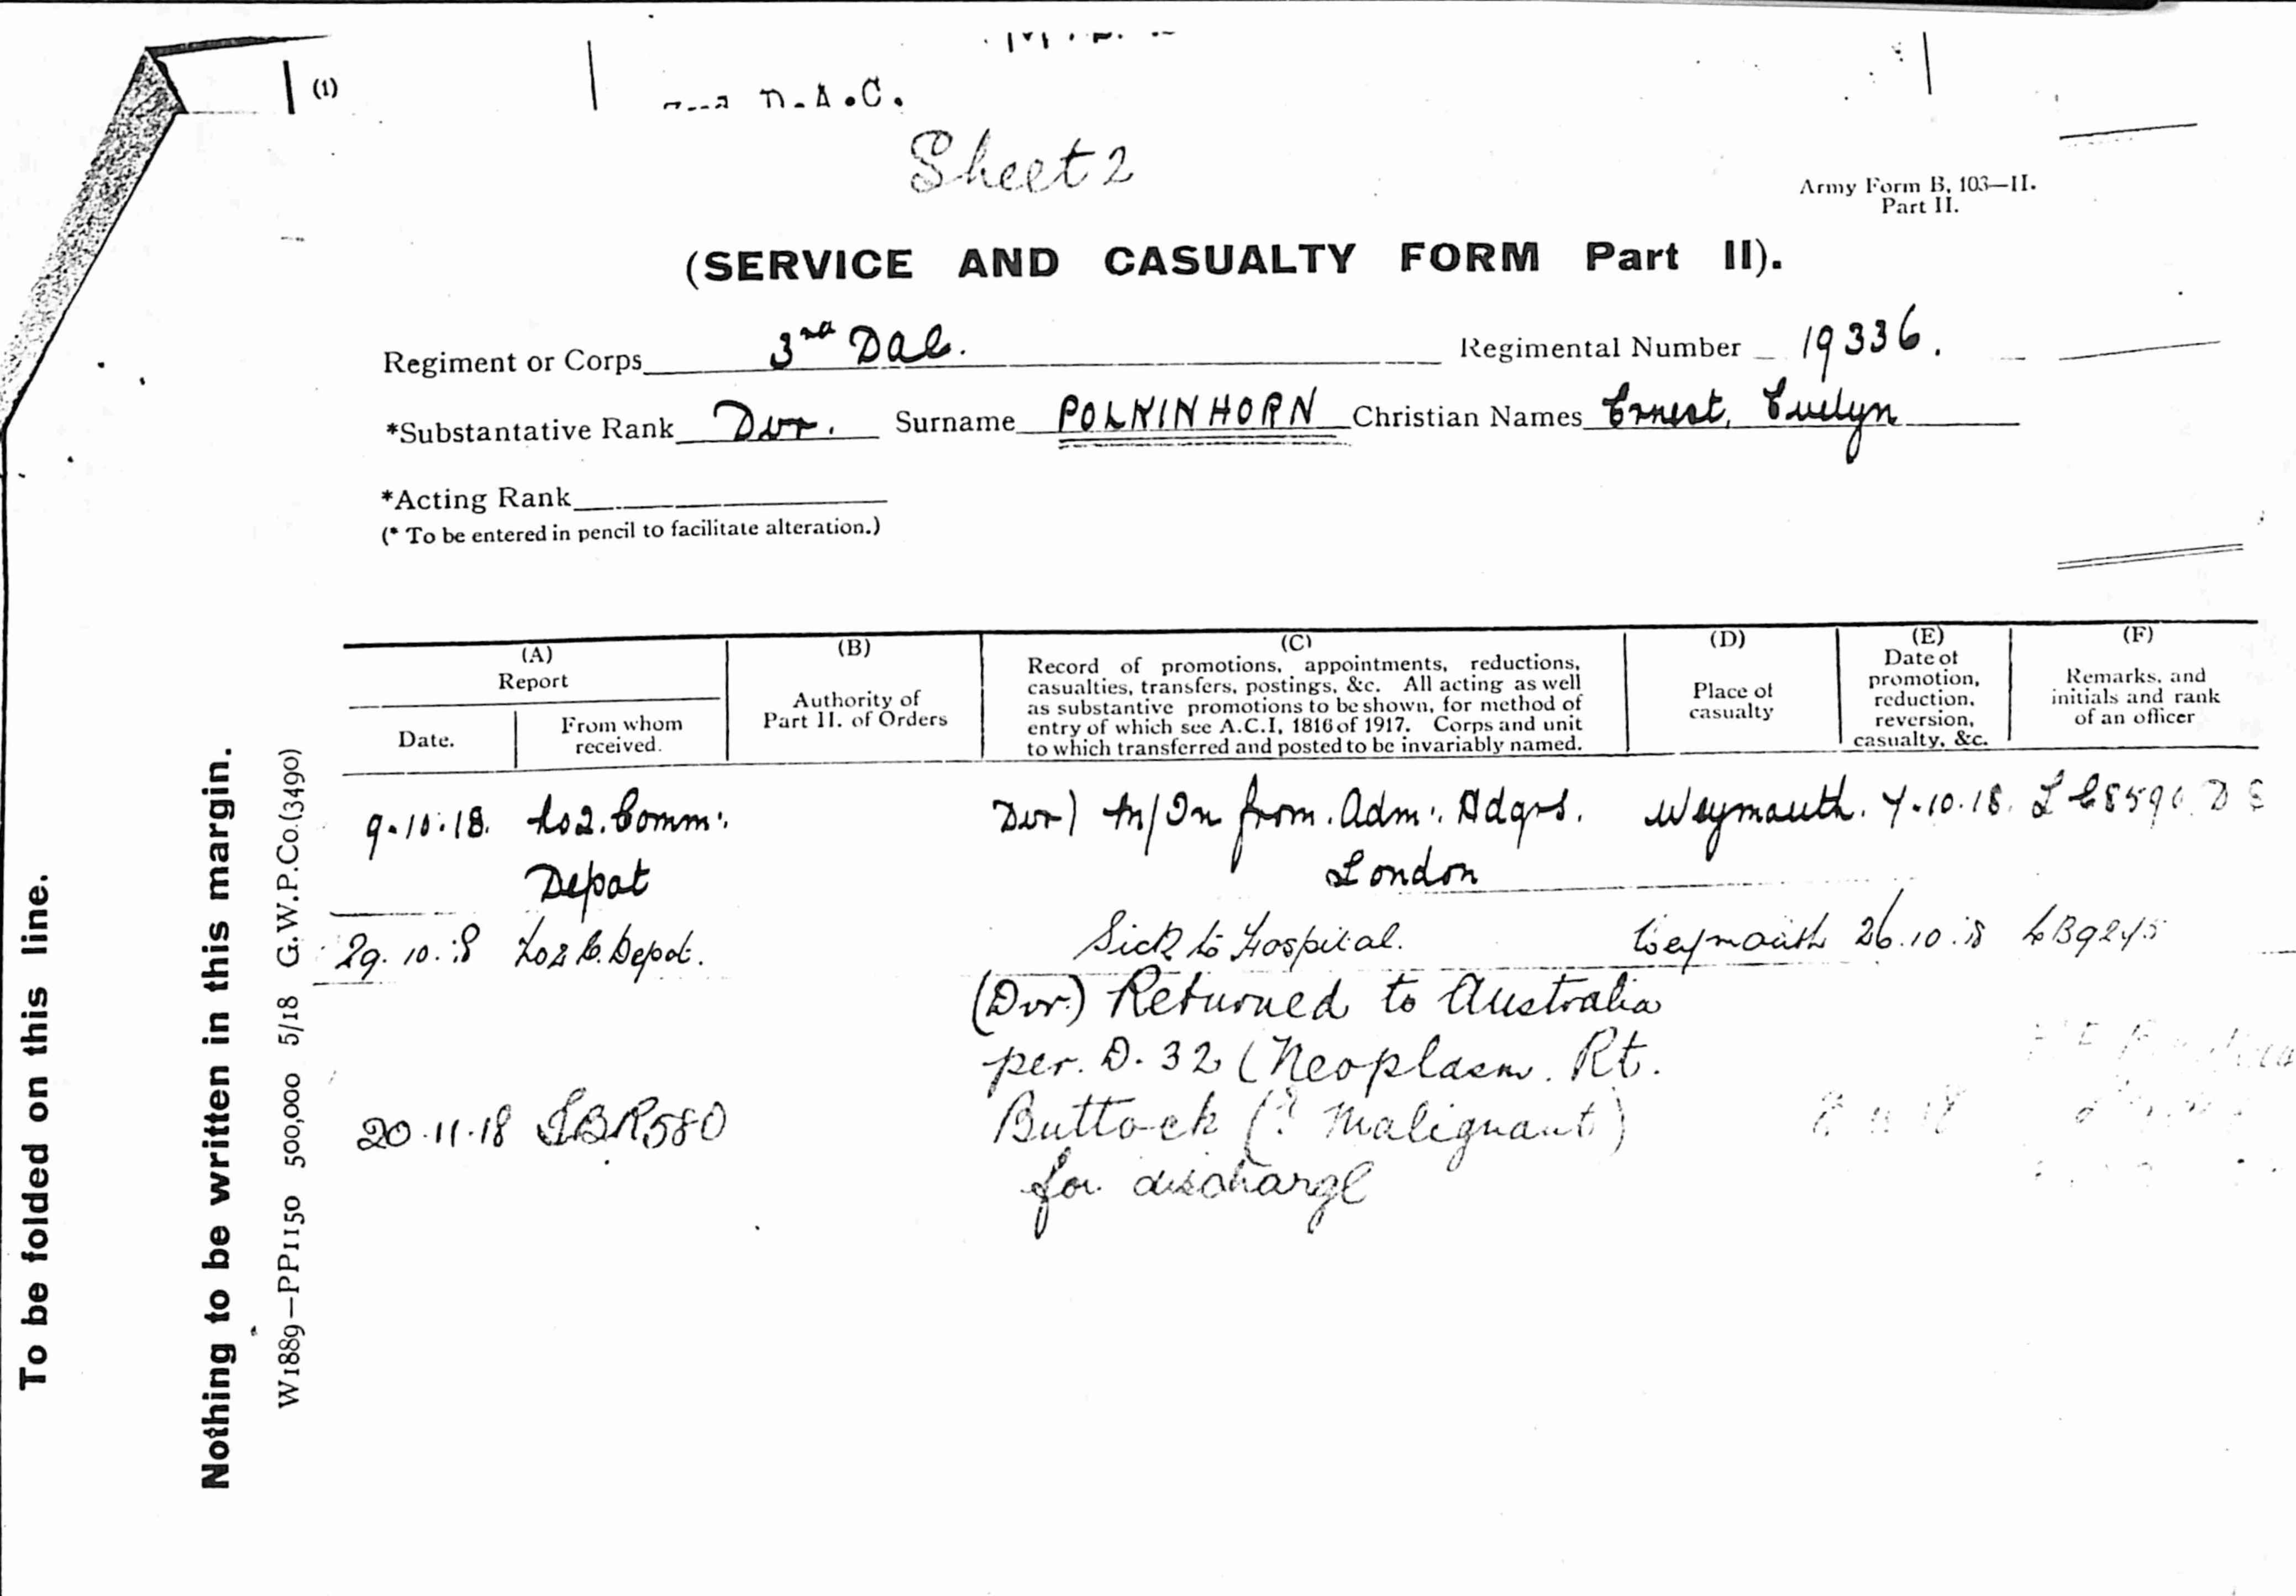 (1)
Sheet 2
Army Form B, 103—II.
Part II.
(SERVICE AND CASUALTY FORM Part II).
Regiment or Corps 3rd DAC. Regimental Number 19336.
*Substantative Rank Dvr. Surname POLKINHORN Christian Names Ernest, Evelyn
*Acting Rank
(* To be entered in pencil to facilitate alteration.)
(A) Report
Date.
From whom received.
(B)
Authority of
Part II. of Orders
(C)
Record of promotions, appointments, reductions,
casualties, transfers, postings, &c. All acting as well
as substantive promotions to be shown, for method of
entry of which see A.C.I, 1816 of 1917. Corps and unit
to which transferred and posted to be invariably named.
(D)
Place of
casualty
(E)
Date of
promotion,
reduction,
reversion,
casualty, &c.
(F)
Remarks, and
initials and rank
of an officer
9.10.18. No 2. Comm: Dvr) M/In from. Adm: Hdqrs. Weymouth. 7.10.18.
Depot London
29.10.18 No 2 C. Depot. Sick to Hospital. Weymouth 26.10.18
(Dvr.) Returned to Australia
per. D. 32 (Neoplasm. Rt.
20.11.18 Buttock (? Malignant)
for discharge
To be folded on this line.
Nothing to be written in this margin.
W1889—PP1150 500,000 5/18 G.W.P.Co.(3490)